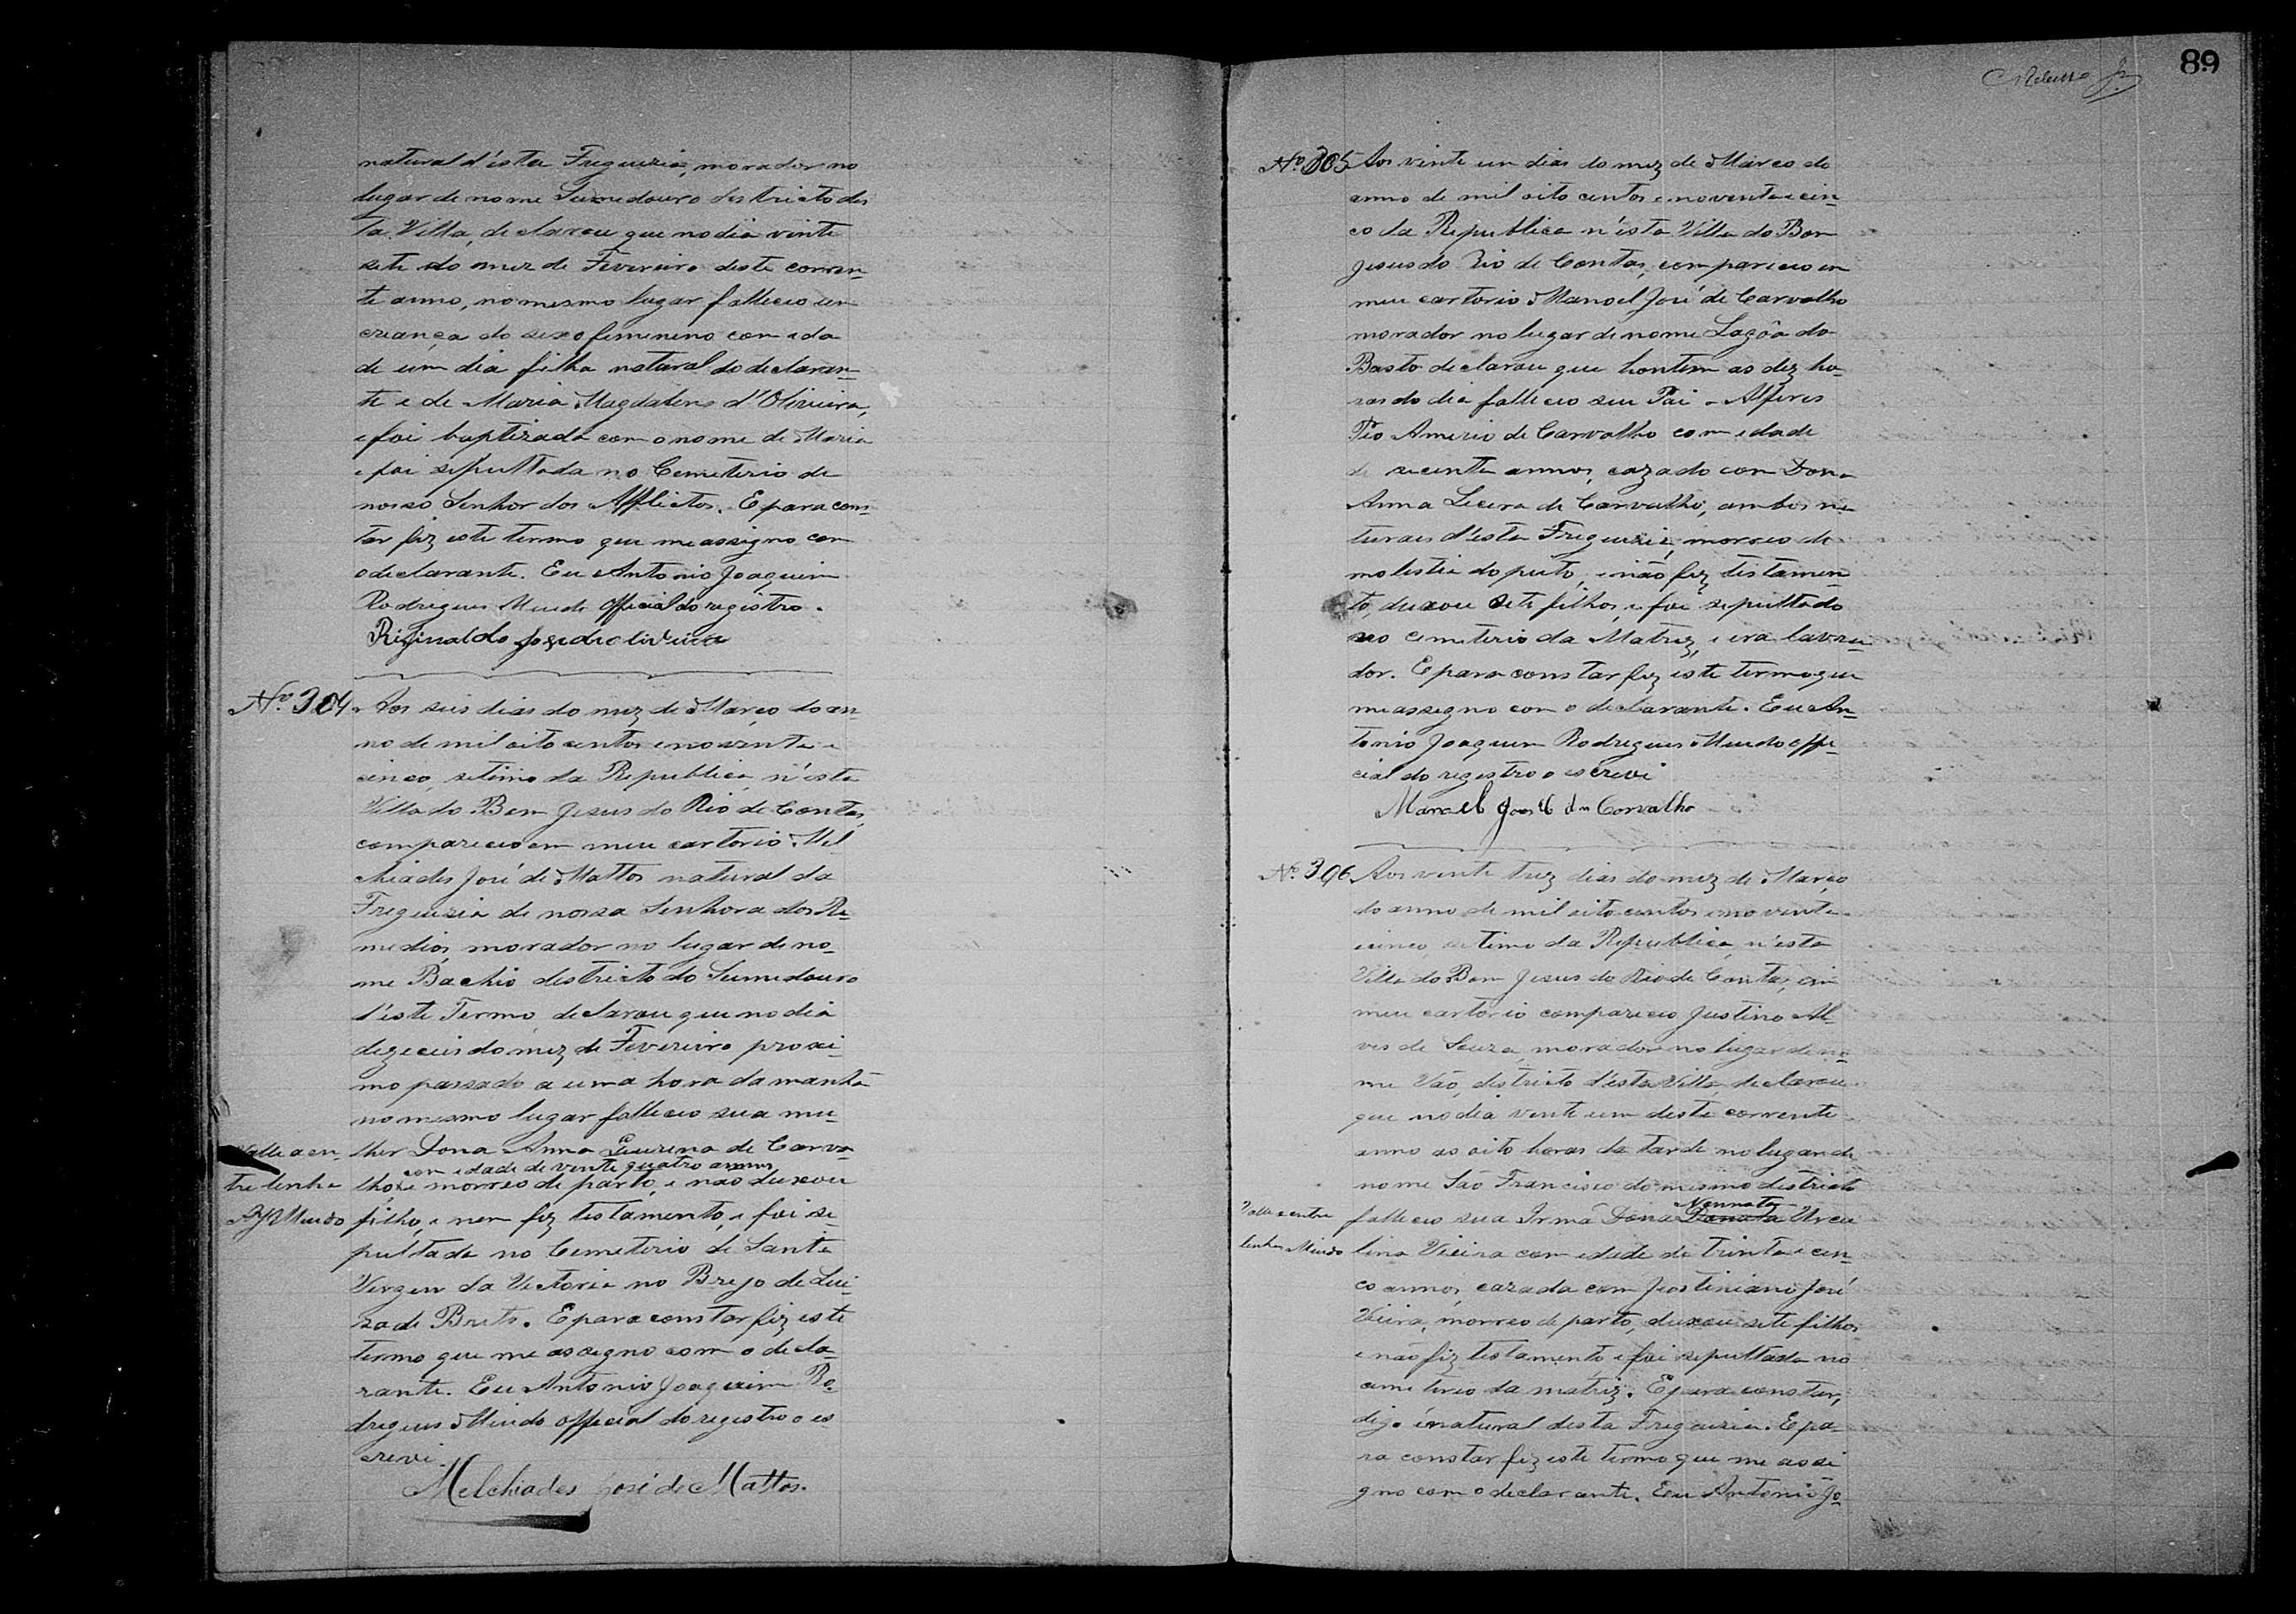 natural d'ésta Freguezia, morador no
lugar de nome Sumedouro destricto des
ta Villa, declarou que no dia vinte
sete do mez de Fevereiro deste corren-
te anno, no mesmo lugar falleceo um
criança do sexo femenino com ida
de um dia filha natural do declaran-
te e de Maria Magdalena d'Oliveira,
e foi baptizada com o nome de Maria
e foi sepultada no Cemeterio de
nosso Senhor dos Afflictos. E para cons
tar fiz este termo que me assigno com
o declarante. Eu Antonio Joaquim
Rodrigues Muido official do registro.
Riginaldo Jose de oliveira
Nº 304 Aos seis dias do mez de Março do an-
no de mil oito centos e noventa e
cinco, setimo da Republica, n'ésta
Villa do Bom Jesus do Rio de Contas,
compareceo em meu cartorio Mel
chiades José de Mattos natural da
Freguezia de nossa Senhora dos Re-
medios, morador no lugar de no-
me Bachio destricto do Sumedouro
d'éste Termo, declarou que no dia
dezeceis do mez de Fevereiro proxi-
mo passado a uma hora da manhã
no mesmo lugar falleceo sua mu-
lher Dona Anna de Carva-
com idade de vente quatro annos
lho, e morreo de parto, e não deixou
filho, e nem fez testamento, e foi se-
pultada no Cemeterio de Santa
Vergem da Victoria no Brejo de Lui-
za de Brito. E para constar fiz este
termo que me assegno com o decla-
rante. Eu Antonio Joaquim Ro-
dregues Muido official do registro o es-
crevi.
Melchiades José de Mattos.
Valle a en
tre linha
AJRMuido
89
Nº 305 Aos vinte um dias do mez de Março do
anno de mil oito centos e noventa e cin-
co da Republica n'ésta Villa do Bom
Jesus do Rio de Contas, compareceo em
meu cartorio Manoel José de Carvalho
morador no lugar de nome Lagôa do
Basto declarou que hontem as dez ho-
ras do dia falleceo seu Pai o Alferes
Pio Amerio de Carvalho com idade
de secenta annos, cazado com Dona
Anna de Carvalho, ambos na
turaes d'ésta Freguezia, morreo de
molestia do peito, e não fez testamen-
to, deixou sete filhos, e foi sepultado
no cemeterio da Matriz, e era lavra-
dor. E para constar fiz este termo que
me assegno com o declarante. Eu An-
tonio Joaquim Rodregues Muido offi-
cial do registro o escrevi
Manoel José de Carvalho
Nº 306 Aos vente trez dias do mez de Março
do anno de mil oito centos e noventa
e cinco, setimo da Republica, n'ésta
Villa do Bom Jesus do Rio de Contas, em
meu cartorio compareceo Justino Al-
ves de Souza, morador no lugar de no-
me Vão, destricto d'ésta Villa, declarou
que no dia vente um deste corrente
anno as oito horas da tarde no lugar de
nome São Francisco do mesmo destricto
Nonnata
falleceo sua Irmã Dona Donata Urcu
lina Vieira com idade de trinta e cin-
co annos, cazada com Justiniano José
Vieira, morreo de parto, deixou sete filhos
e não fez testamento e foi sepultada no
cemeterio da matriz. E para constar,
digo é natural desta Freguezia. E pa-
ra constar fiz este termo que me assi
gno com o declarante. Eu Antonio Jo-
Valle a entre
linha Muido